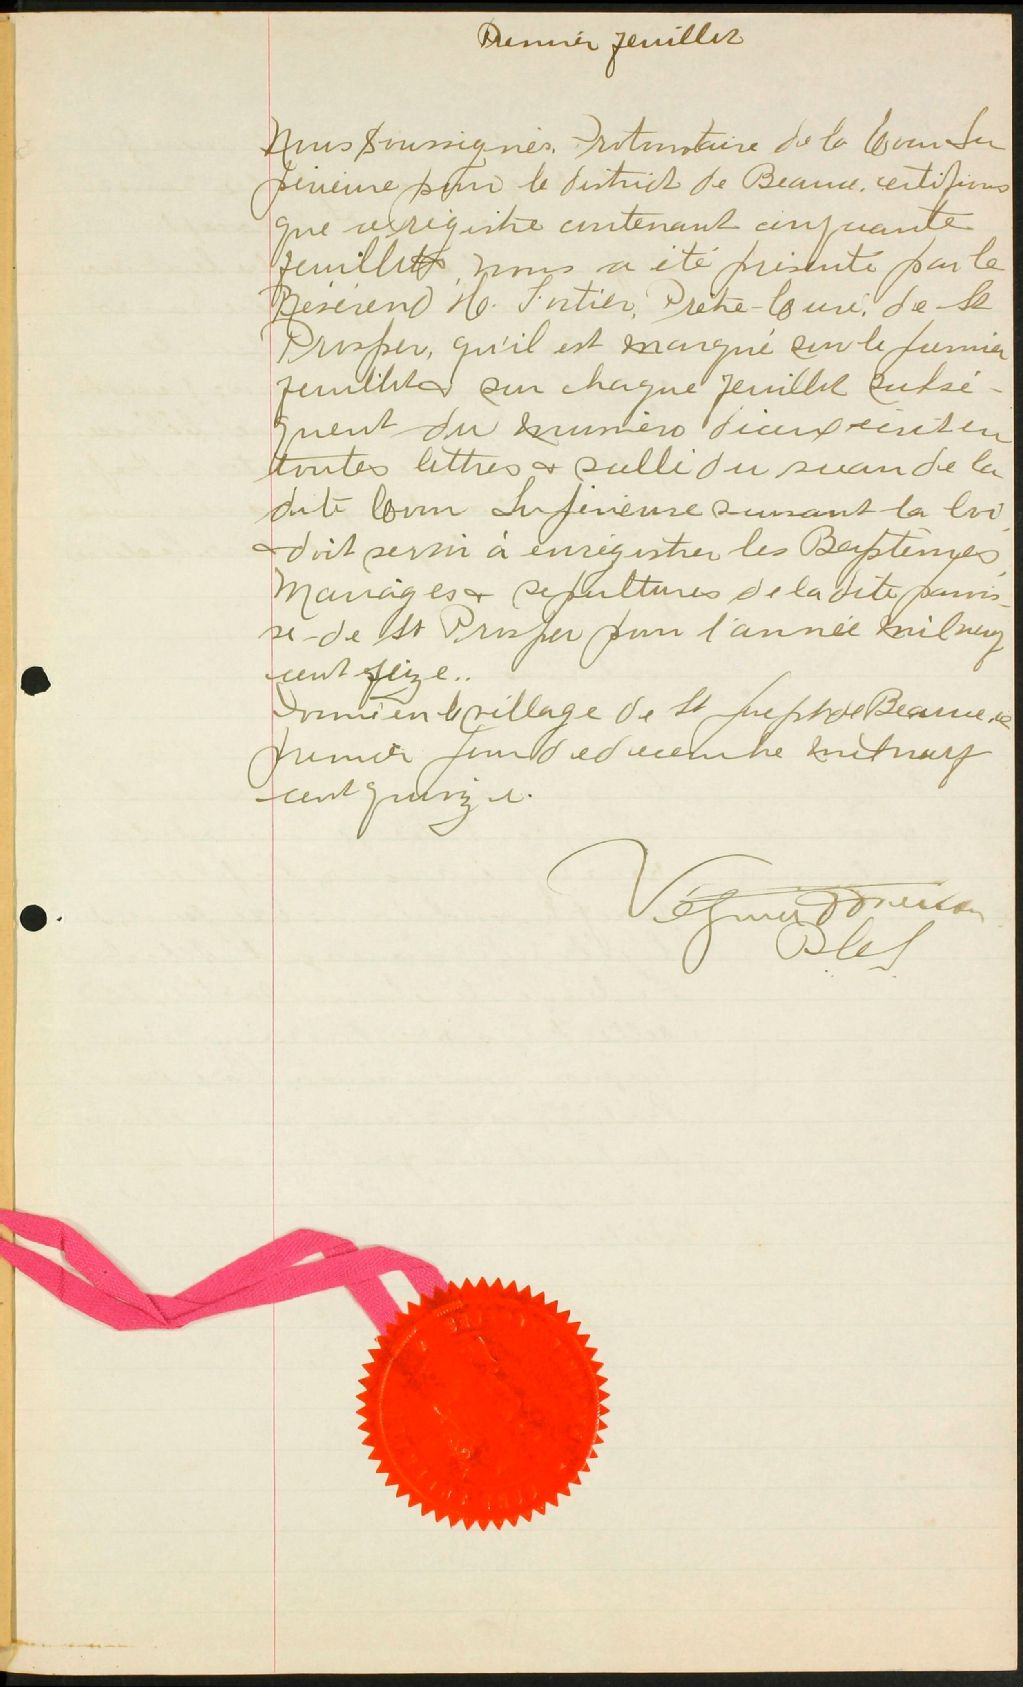 Premier feuillet
Nous soussignés, Protonotaire de la Cour Su
périeure pour le district de Beauce, certifions
que ce registre contenant cinquante
feuillets, nous a été présenté par le
Révérend H. Fortier, Prêtre-Curé, de St
Prosper, qu'il est marqué sur le premier
feuillet & sur chaque feuillet subsé-
quent du numéro d'iceux écrit en
toutes lettres & scellé du sceau de la
dite Cour Supérieure suivant la loi,
& doit servir à enrégistrer les Baptêmes,
Mariages & sepultures de la dite parois-
se de St Prosper pour l'année mil neuf
cent seize..
Donné en le village de St Joseph de Beauce, ce
premier jour de decembre mil neuf
cent quinze.
Vézina